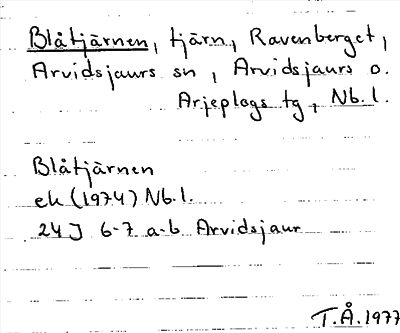 Blåtjärnen, tjärn, Ravenberget,
Arvidsjaurs sn, Arvidsjaurs o.
Arjeplogs tg, Nb. l.
Blåtjärnen
ek (1974) Nb. l.
24J 6-7 a-b Arvidsjaur
T.Å. 1977